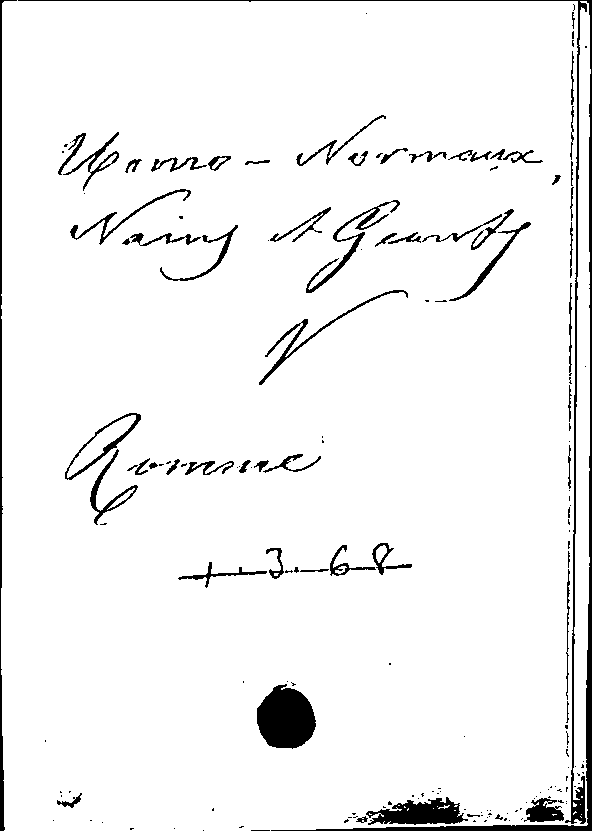 Homo-Normaux,
Nains et Geants
V
Romme
1.3.68